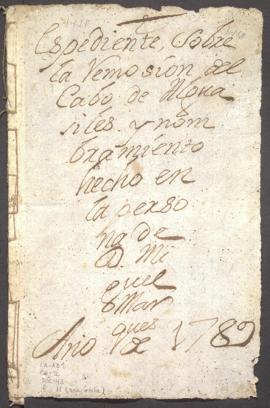 Espediente, Sobre
la Remosión del
Cabo de Mova
siles y nom
bramiento
hecho en
la perso
na de
D. Mi
guel
Mar
ques
Año de 1789